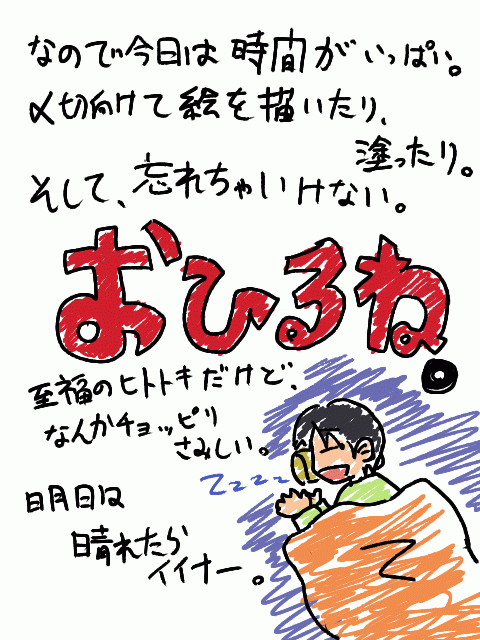 なので今日は時間がいっぱい。
〆切向けて絵を描いたり、
塗ったり。
そして、忘れちゃいけない。
おひるね。
至福のヒトトキだけど、
なんかチョッピリ
さみしい。
zzzz
明日は
晴れたら
イイナー。